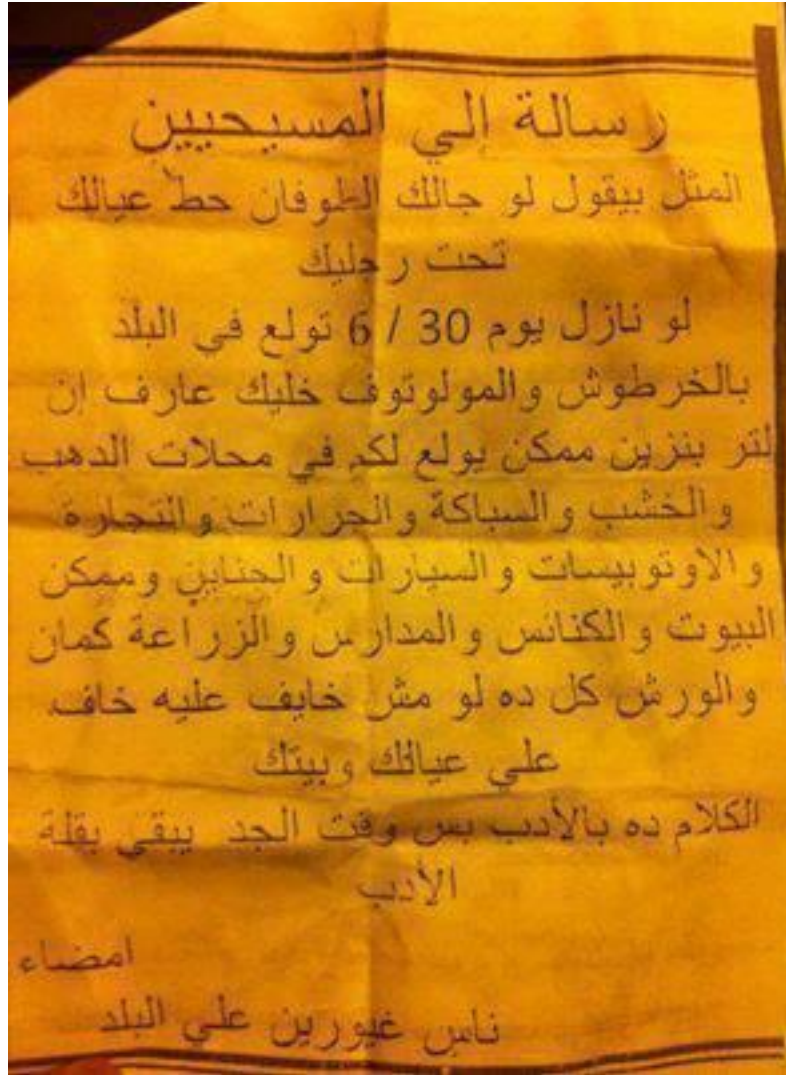 رسالة إلي المسيحيين
المثل بيقول لو جالك الطوفان حط عيالك
تحت رجليك
لو نازل يوم 30 / 6 تولع في البلد
بالخرطوش والمولوتوف خليك عارف ان
لتر بنزين ممكن يولع لكم في محلات الدهب
والخشب والسباكة والجرارات والتجارة
والاوتوبيسات والسيارات والجناين وممكن
البيوت والكنائس والمدارس والزراعة كمان
والورش كل ده لو مش خايف عليه خاف
علي عيالك وبيتك
الكلام ده بالأدب بس وقت الجد يبقي بقلة
الأدب
امضاء
ناس غيورين علي البلد